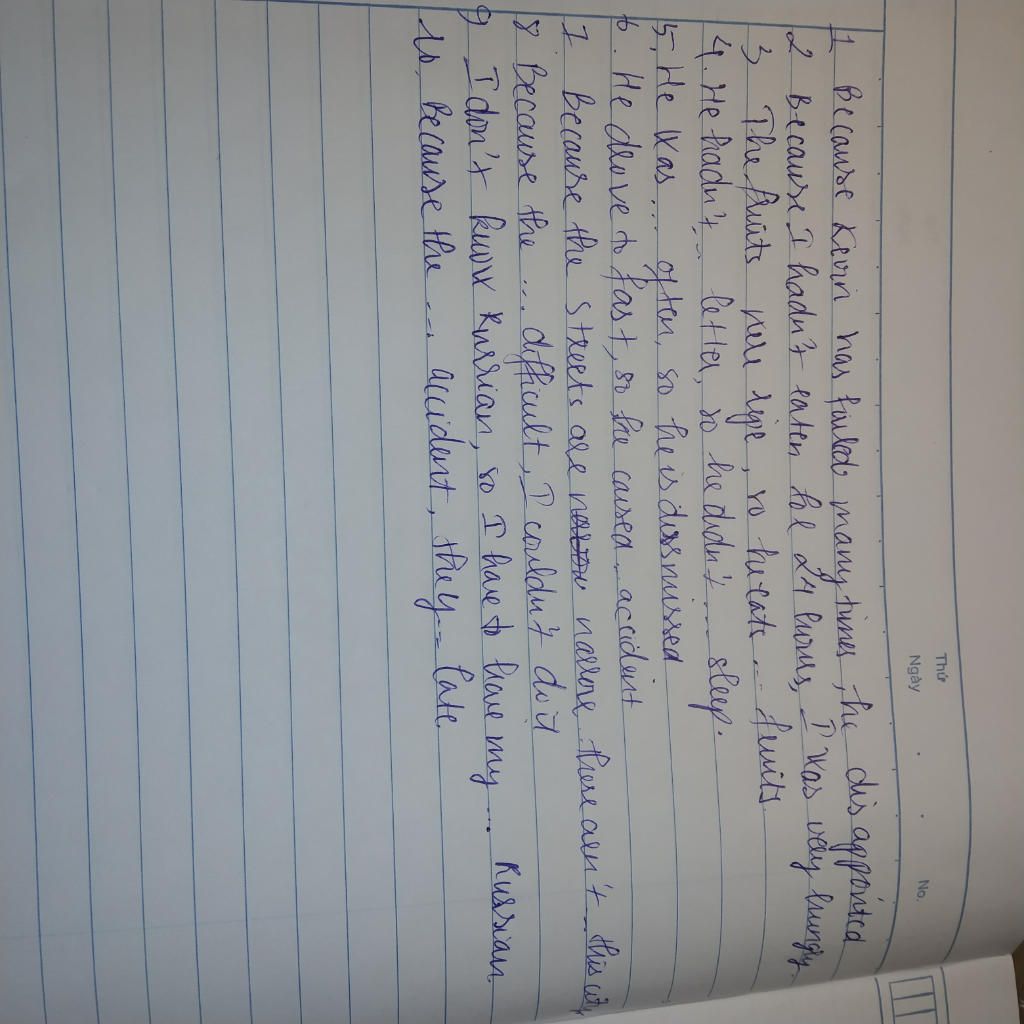 Thứ
Ngày
No.
1 Because Kevin has failed many times, he disappointed
2 Because I hadn't eaten for 24 hours, I was very hungry.
3 The fruits were ripe, so he eats ... fruits.
4. He hadn't ... letter, so he didn't ... sleep.
5. He was ... often, so he is dissmissed
6. He drove to fast, so he caused .. accident
7 Because the streets are narrow there aren't ... this city
8 Because the ... difficult, I couldn't do it
9 I don't know Russian, so I have to have my ... Russian.
10. Because the ... accident, they ... late